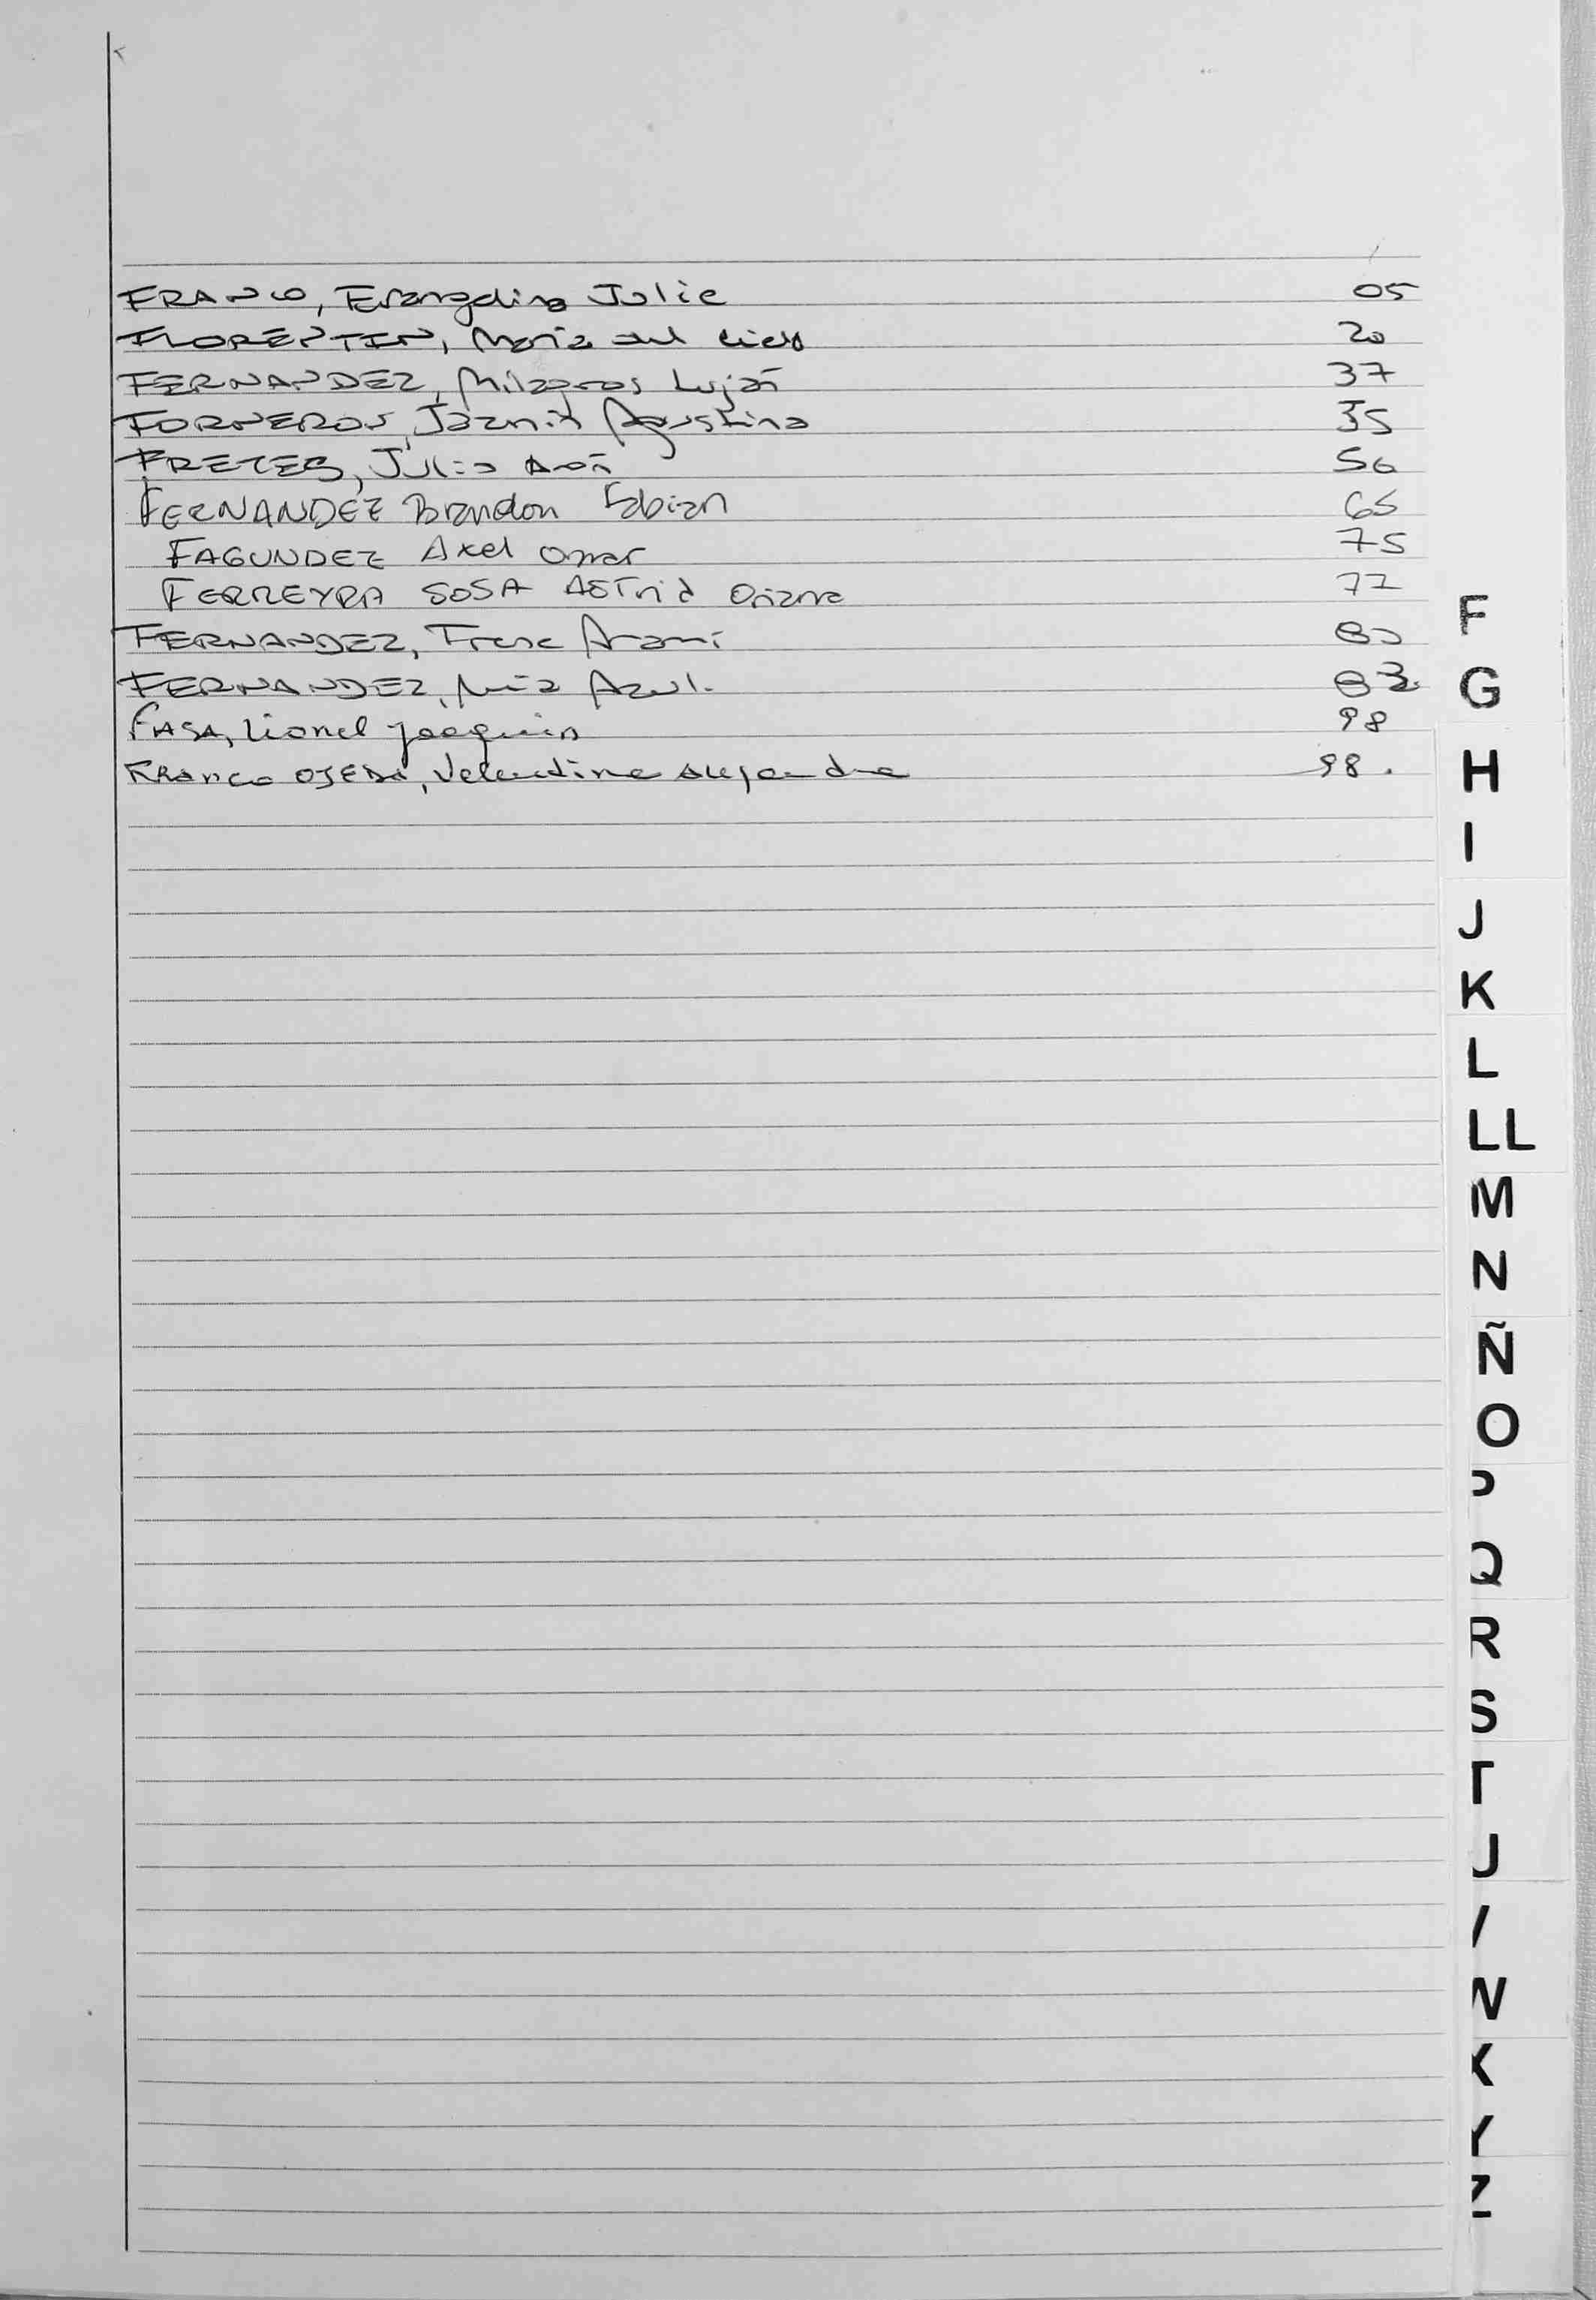 FRANCO, Evangelina Julie 05
FLORENTIN, Maria del Cielo 20
FERNANDEZ, Milagros Luján 37
FORNEROS, Jazmin Agustina 35
FRETES, Julio 56
FERNANDEZ Brandon Fabian 65
FAGUNDEZ Axel Omar 75
FERREYRA SOSA ASTrid Oriana 77
FERNANDEZ, Arami 80
FERNANDEZ, Mia Azul. 83
FASA, Lionel Joaquin 98
FRANCO OJEDA, Valentina Alejandra 98.
F
G
H
I
J
K
L
LL
M
N
Ñ
O
P
Q
R
S
T
U
V
W
X
Y
Z